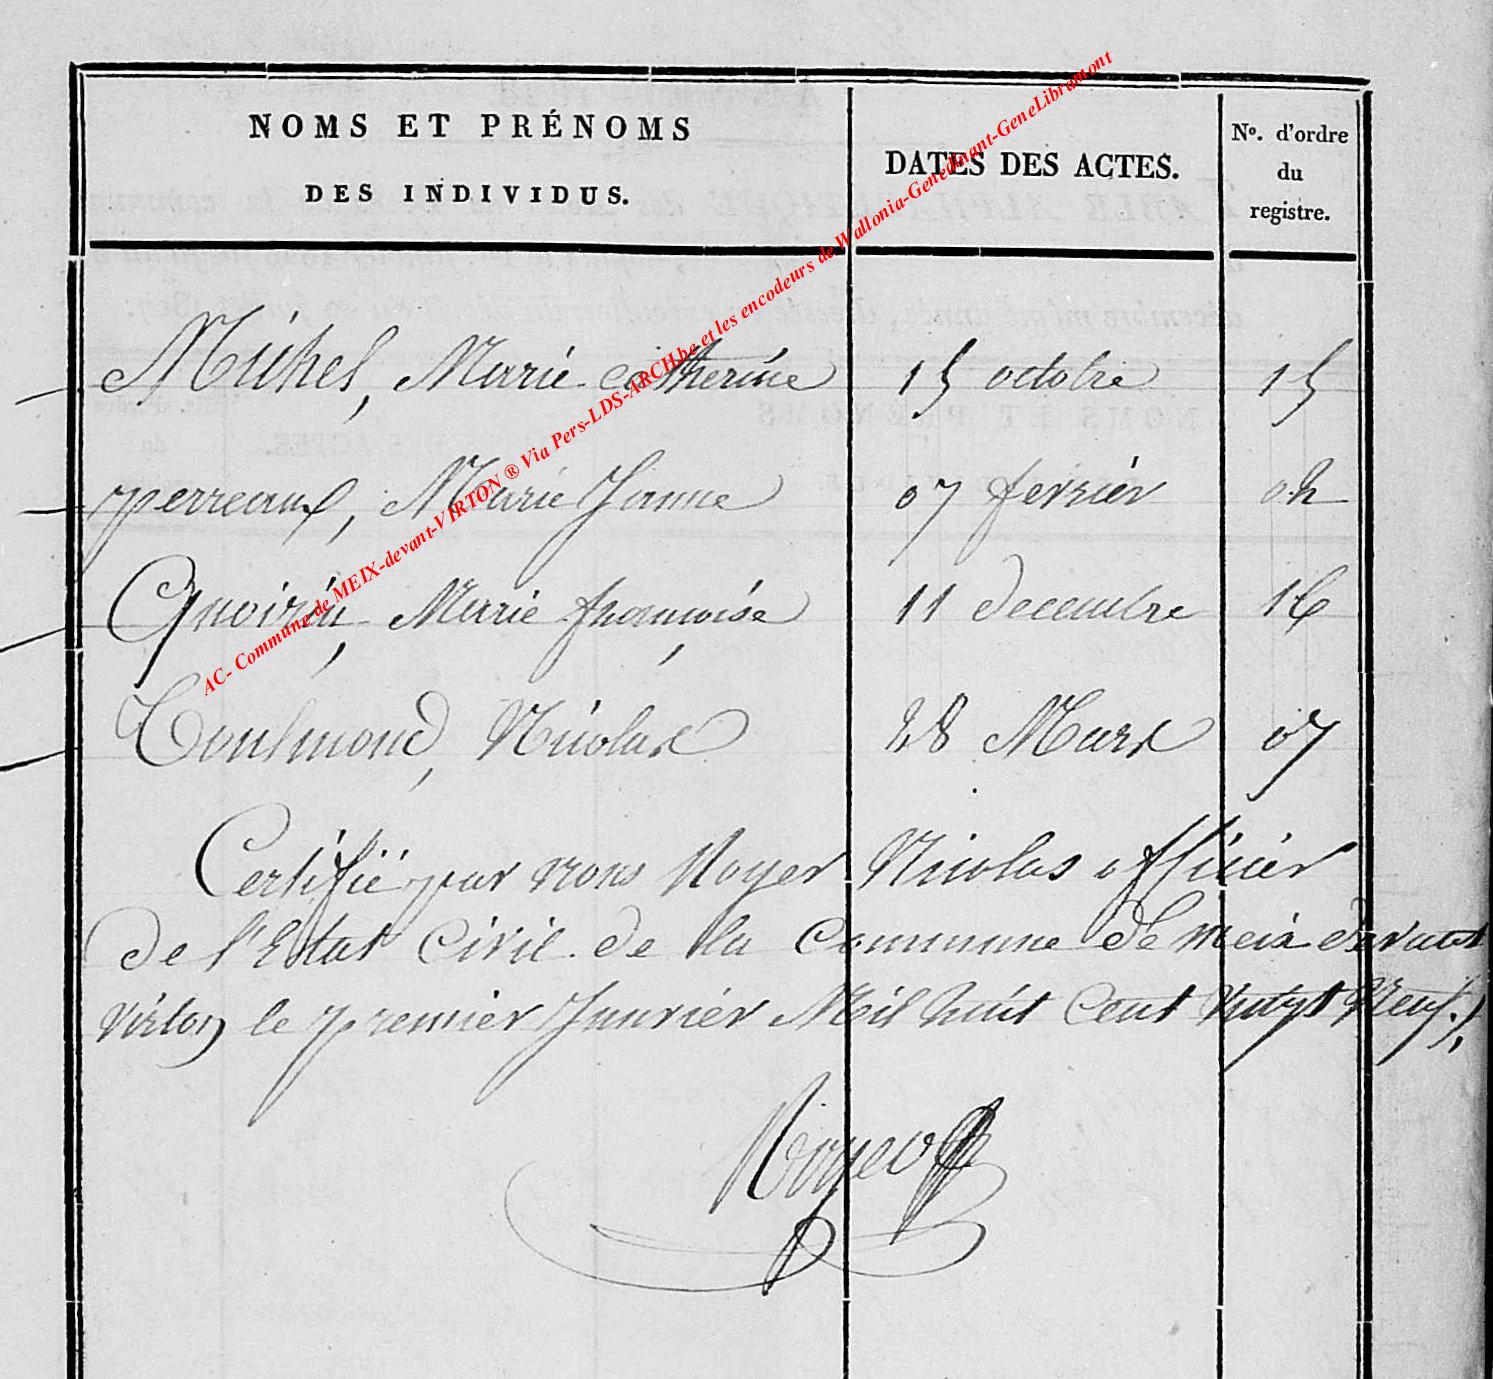 NOMS ET PRÉNOMS
DES INDIVIDUS.
DATES DES ACTES.
No. d'ordre
du
registre.
Michel, Marie catherine 15 octobre 15
perreaux, Marie Jeanne 07 fevrier 02
Gnoirin, Marie françoise 11 decembre 16
Toulmond, Nicolas 28 Mars 07
Certifié par nous Noyer Nicolas officier
de l'Etat Civil de la Commune de meix devant
virton le premier Janvier Mil huit Cent vingt Neuf.
Noyer
AC- Commune de MEIX-devant-VIRTON ® Via Pers-LDS-ARCH.be et les encodeurs de Wallonia-Genedinant-GeneLibramont